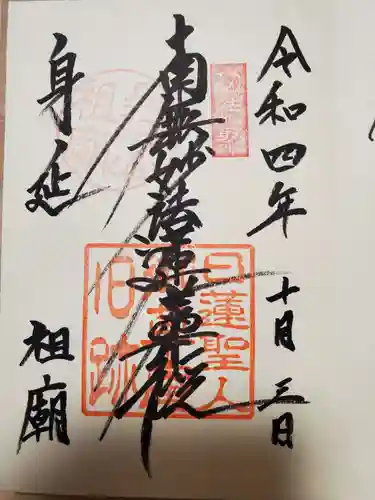 令和四年 十月 三日
南無妙法蓮華経
日蓮聖人
旧跡
身延
祖廟